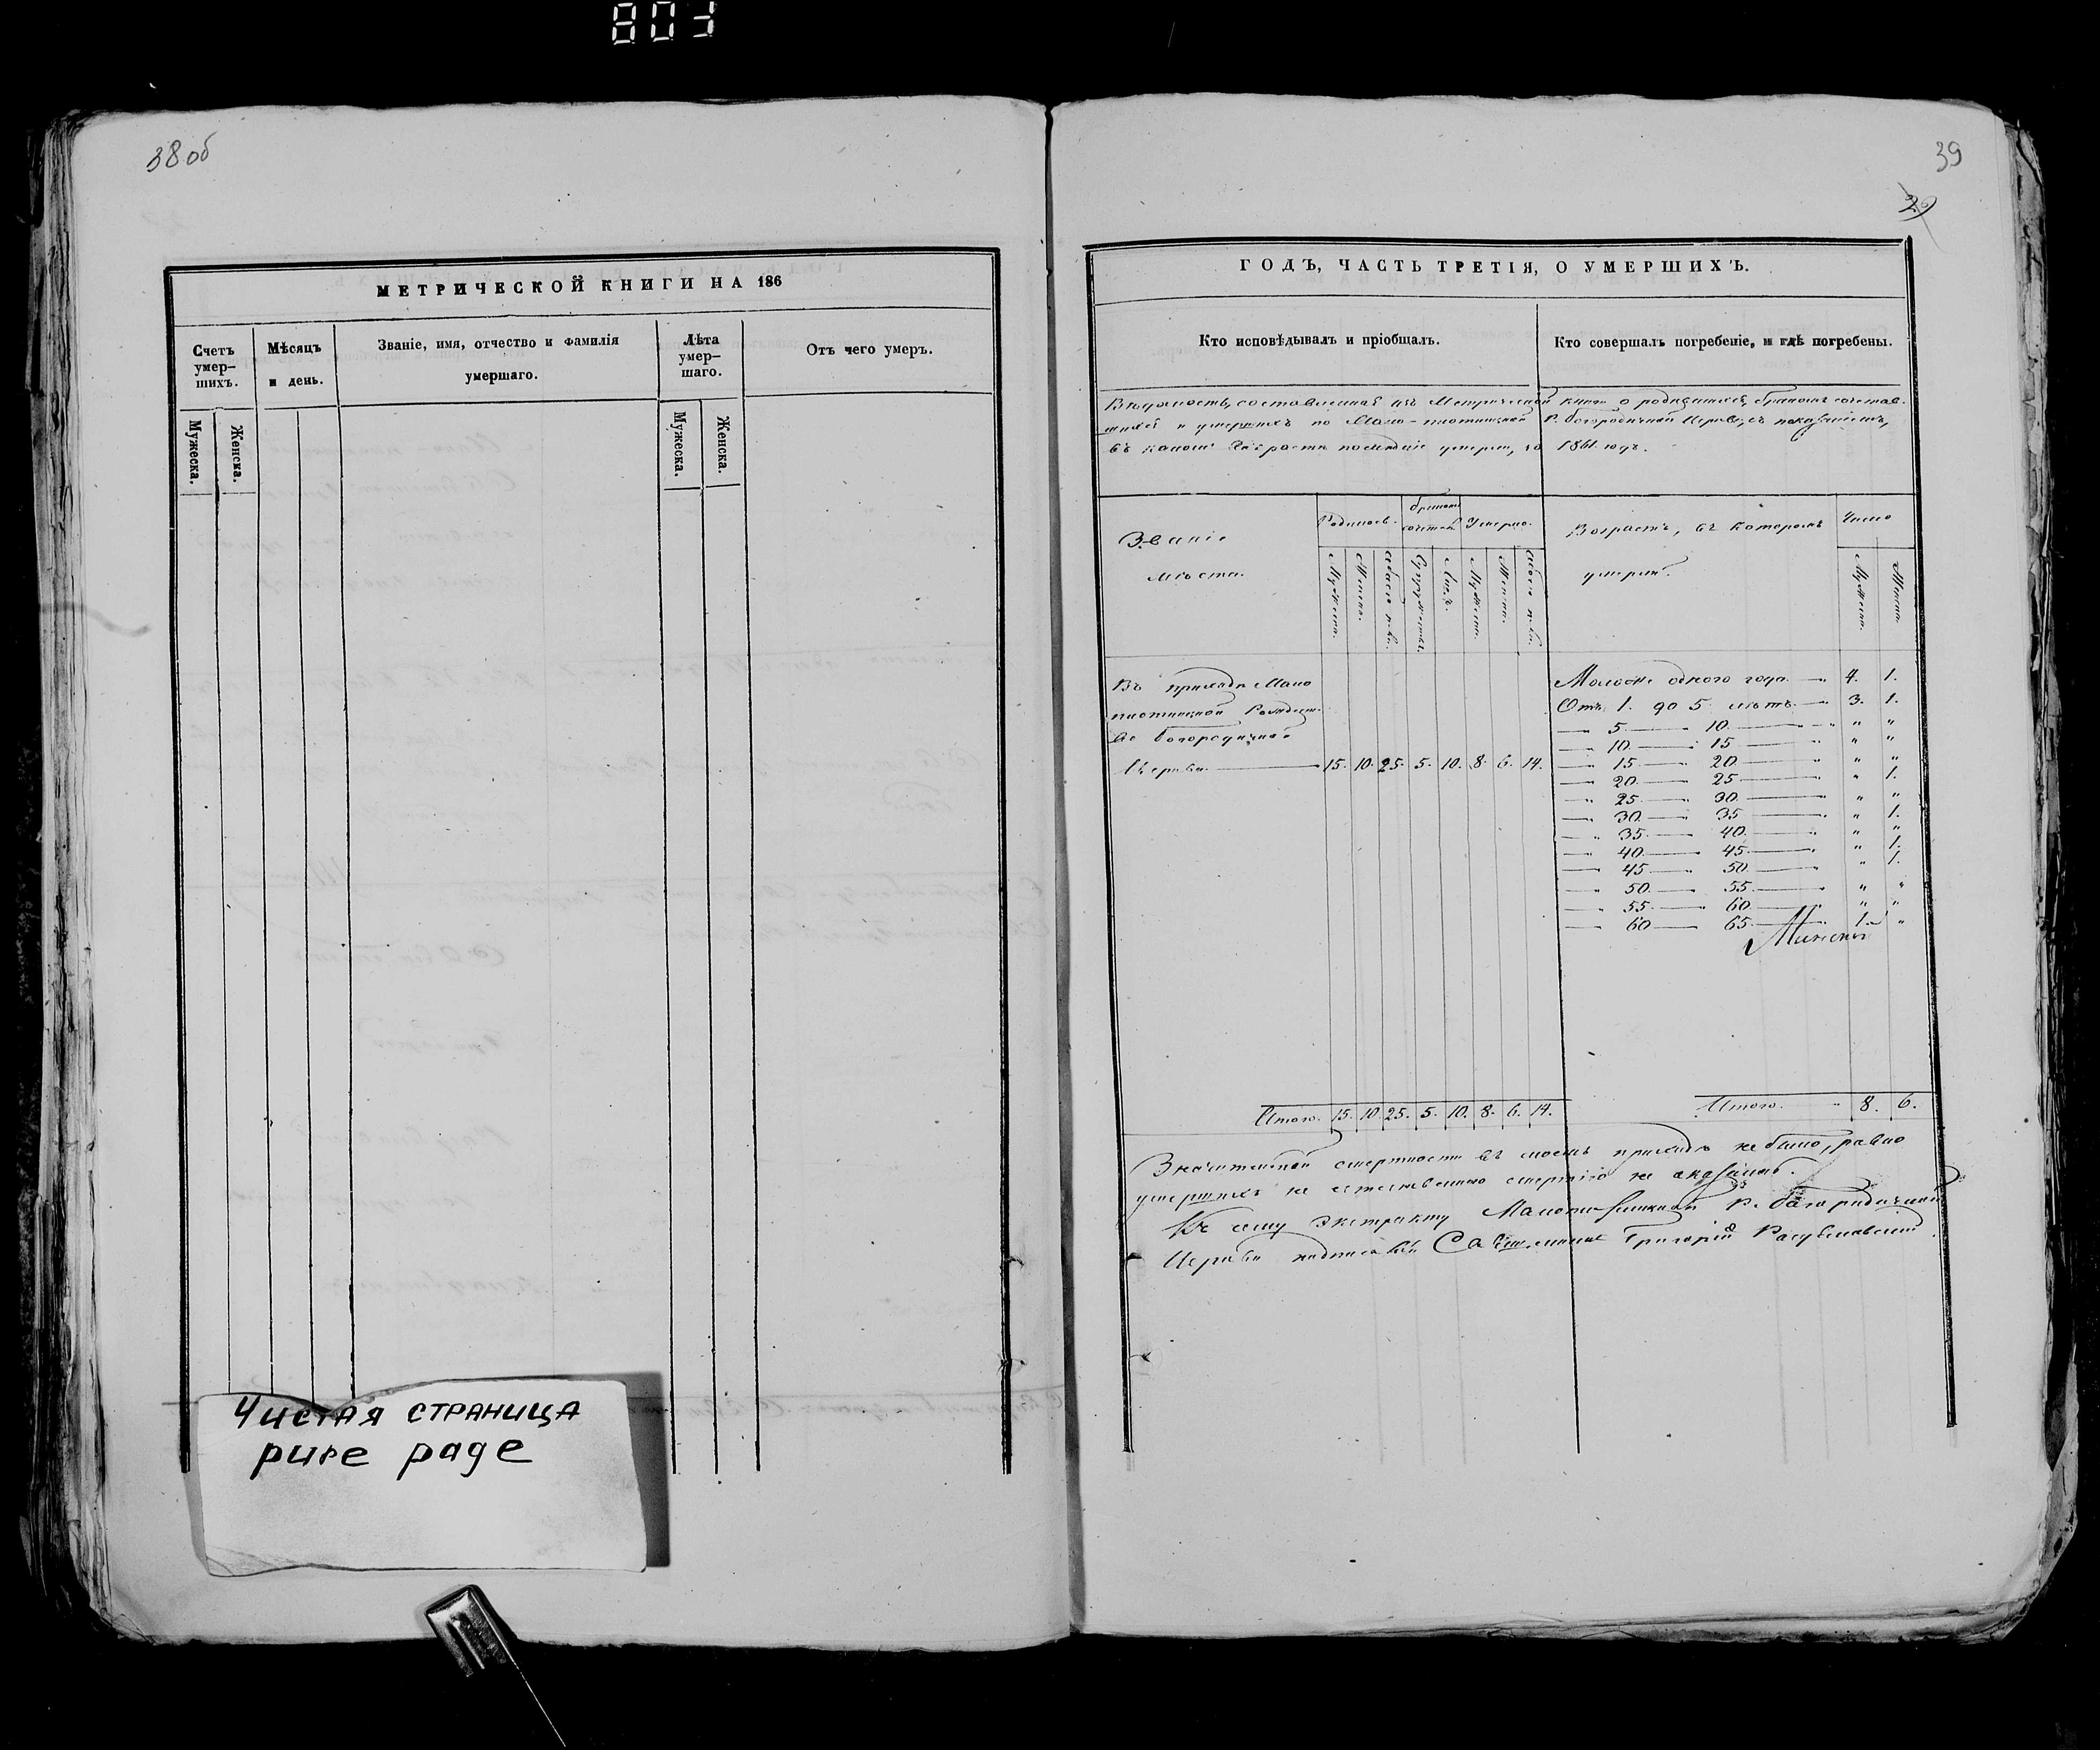 38 об
МЕТРИЧЕСКОЙ КНИГИ НА 186
Счетъ умер-шихъ.
Мѣсяцъ и день.
Званіе, имя, отчество и фамилія умершаго.
Лѣта умер-шаго.
Отъ чего умеръ.
Мужеска.
Женска.
Мужеска.
Женска.
Чистая страница
pure page
39
29
ГОДЪ, ЧАСТЬ ТРЕТІЯ, О УМЕРШИХЪ.
Кто исповѣдывалъ и пріобщалъ.
Кто совершалъ погребеніе, и гдѣ погребены.
Вѣдомость, составленная изъ Метрической книги о родившихся, бракомъ сочетав-
шихся и умершихъ по Мало-плотинской Р. богородичной Церкви, съ показаніемъ,
въ какомъ возрастѣ послѣдніе умерли, за 1861 годъ.
Званіе мѣста.
Родилось.
бракомъ сочетал.
Умерло.
Возрастъ, въ которомъ умерли.
Число
Мужеска.
Женска.
обоего п-ла.
Супружествъ.
Лицъ.
Мужеска.
Женска.
обоего п-ла.
Мужеска.
Женска.
Въ приходѣ Мало
плотинской Рождест-
во богородичной
Церкви 15. 10. 25. 5. 10. 8. 6. 14.
Моложе одного года 4. 1.
Отъ 1. до 5 лѣтъ 3. 1.
5 10 " "
10 15 " "
15 20 " "
20 25 " 1.
25 30 " "
30 35 " 1.
35 40 " "
40 45 " 1.
45 50 " 1.
50 55 " "
55 60 " "
60 65 1. "
Итого. 15. 10 25. 5. 10. 8. 6. 14.
Итого 8. 6.
Значительной смертности въ моемъ приходѣ не было, равно
умершихъ не естественною смертію не оказалось.
Къ сему экстракту Р. богородичной
Церкви Священникъ Григорій